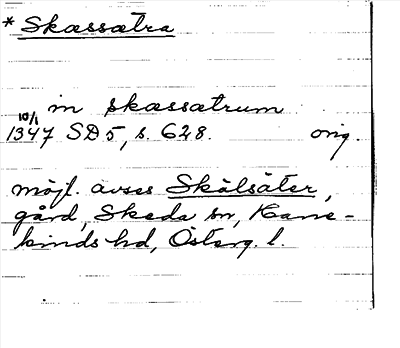 * Skæssætra
in skæssætrum
10/1 1347 SD 5, s. 628. orig.
möjl. avses Skälsäter,
gård, Skeda sn, Hane-
kinds hd, Österg. l.